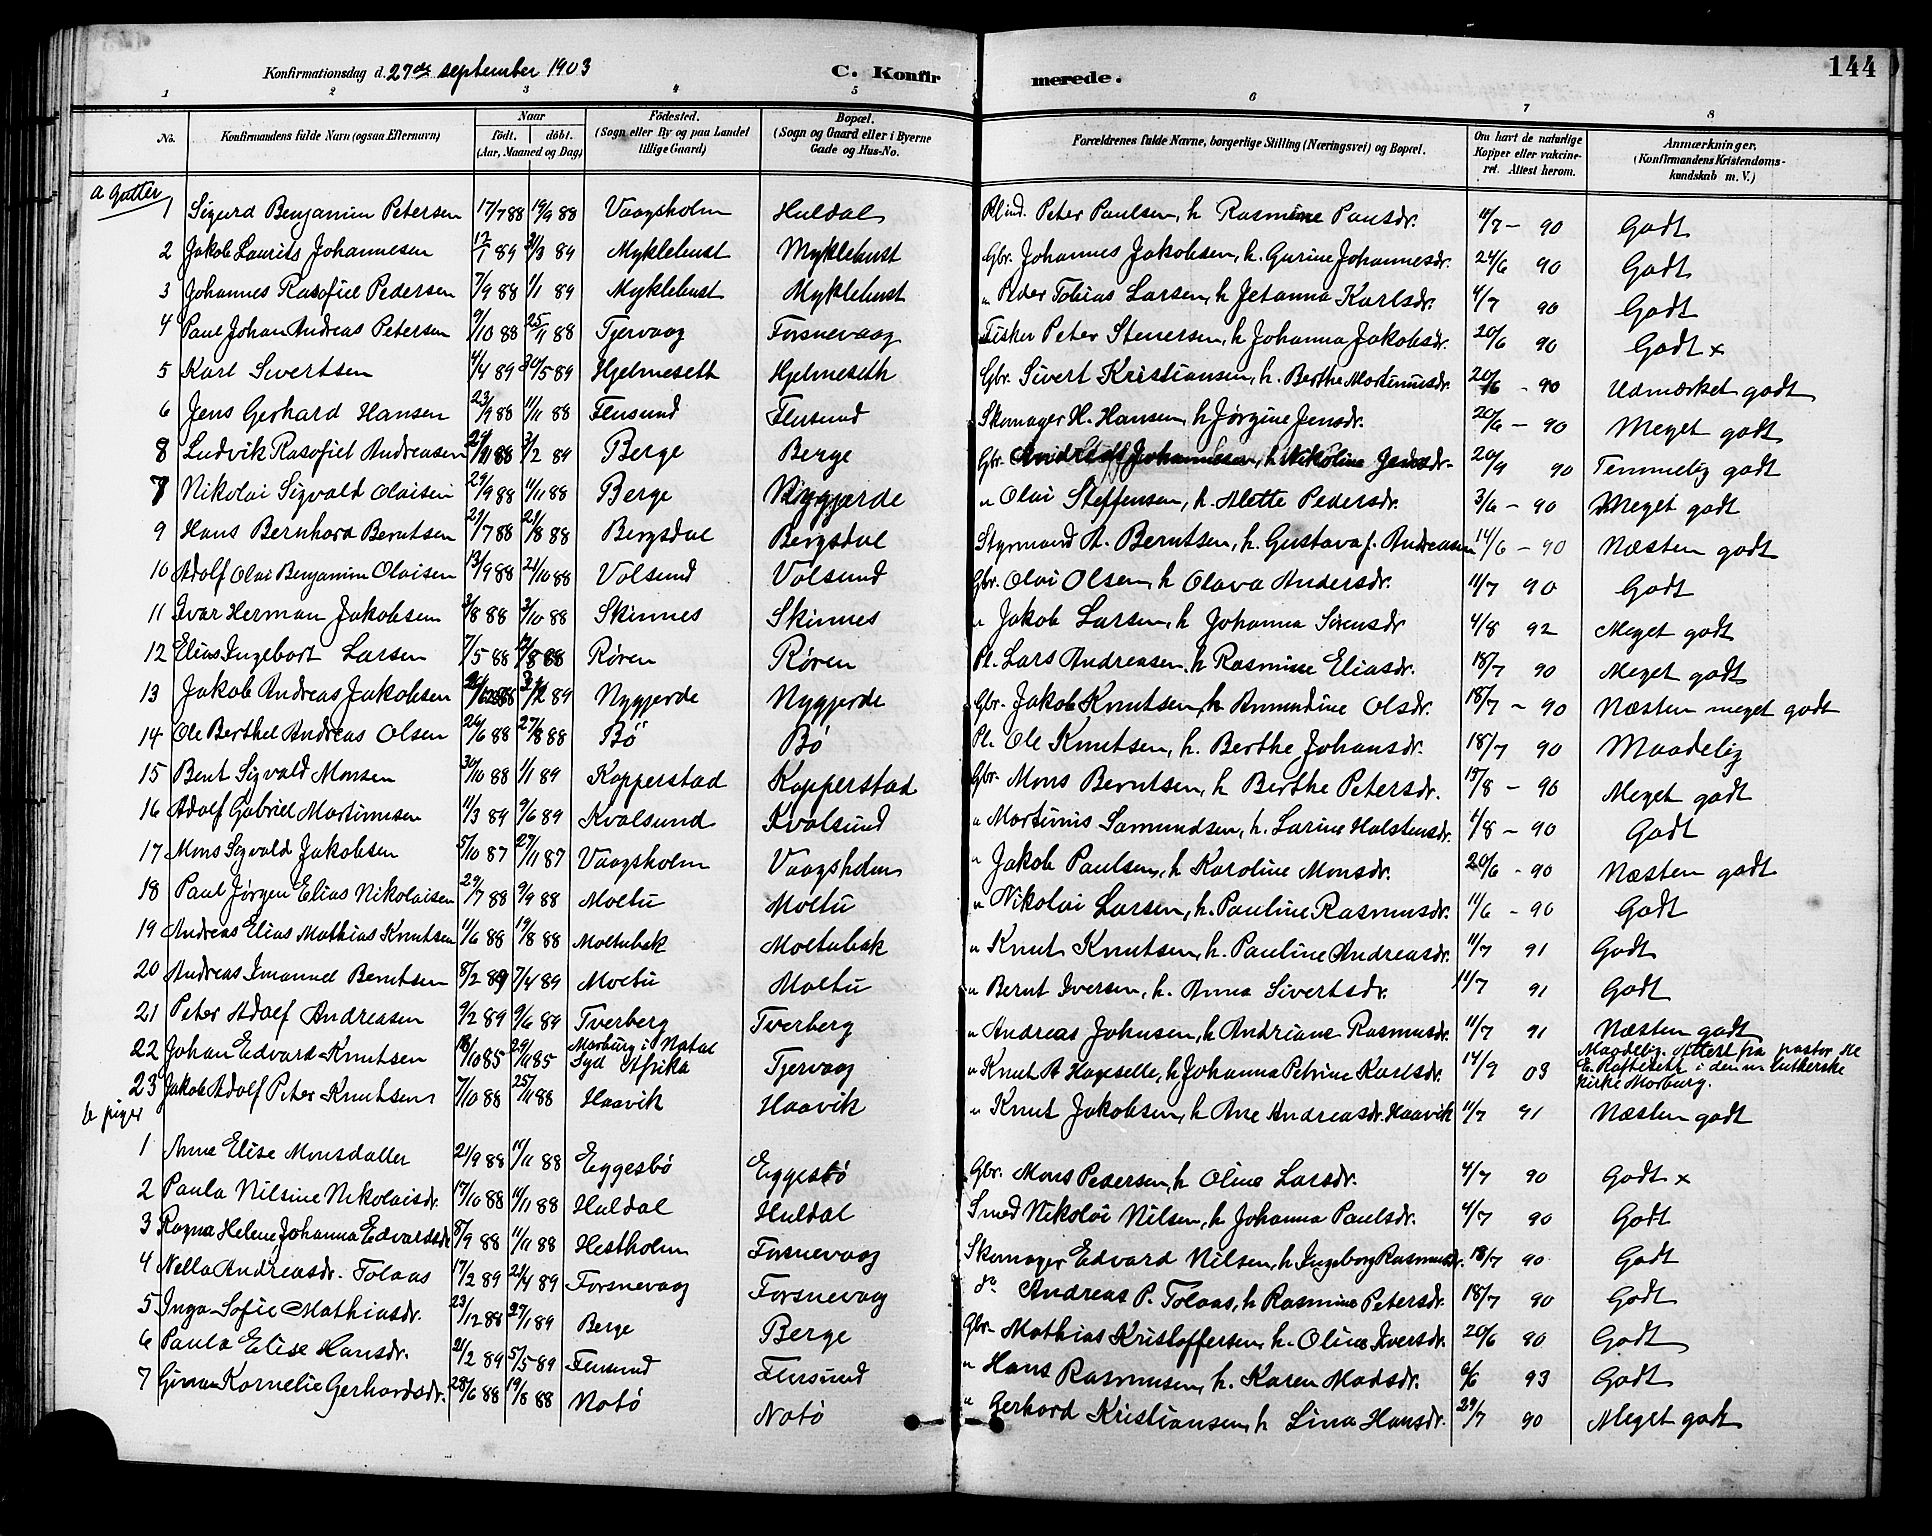 144
Konfirmationsdag d. 27de september 1903 C. Konfirmerede.
1 2 3 4 5 6 7 8
No. Konfirmandens fulde Navn (ogsaa Efternavn) Naar født. døbt. (Aar, Maaned og Dag) Fødested. (Sogn eller By og paa Landet tillige Gaard) Bopæl. (Sogn og Gaard eller i Byerne Gade og Hus-No. Forældrenes fulde Navne, borgerlige Stilling (Næringsvei) og Bopæl. Om havt de naturlige Kopper eller vakcineret. Attest herom. Anmærkninger. (Konfirmandens Kristendomskundskab m. V.)
a Gutter
1 Sigurd Benjamin Petersen 17/7 88 19/9 88 Vaagsholm Huldal Blind. Peter Paulsen, h Rasmine Paulsdr. 11/7 - 90 Godt
2 Jakob Laurits Johannesen 12/1 89 3/3 89 Myklebust Myklebust Gbr. Johannes Jakobsen, h. Gurine Johannesdr. 24/6 90 Godt
3 Johannes Rasofiel Pedersen 7/9 88 1/1 89 Myklebust Myklebust " Peder Tobias Larsen, h Jetanna Karlsdr. 4/7 90 Godt
4 Paul Johan Andreas Petersen 9/10 88 25/11 88 Tjervaag Fosnevaag Fisker Peter Stenersen, h Johanna Jakobsdr. 20/6 90 Godt x
5 Karl Sivertsen 4/4 89 30/5 89 Hjelmeseth Hjelmeseth Gbr. Sivert Kristiansen, h. Berthe Martinusdr. 20/6 - 90 Udmærket godt
6 Jens Gerhard Hansen 23/9 88 11/11 88 Flusund Flusund Skomager H. Hansen, h Jørgine Jensdr. 20/6 - 90 Meget godt
8 Ludvik Rasofiel Andreasen 24/11 88 3/2 89 Berge Berge Gbr. Johannesen, h Nikoline Jensdr. 20/9 90 Temmelig godt
7 Nikolai Sigvald Olaisen 29/9 88 11/11 88 Berge Nygjerde " Olai Steffensen, h. Mette Pedersdr. 3/6 - 90 Meget godt
9 Hans Bernhard Berntsen 21/7 88 21/8 88 Bergsdal Bergsdal Styrmand A. Berntsen, h. Gustava f. Andreasen 14/6 - 90 Næsten godt
10 Adolf Olai Benjamin Olaisen 13/9 88 21/10 88 Volsund Volsund Gbr. Olai Olsen, h Olava Andersdr. 11/7 90 Godt
11 Ivar Herman Jakobsen 3/8 88 3/10 88 Skinnes Skinnes " Jakob Larsen, h Johanna Sørensdr 4/8 92 Meget godt
12 Elias Ingebort Larsen 7/5 88 88 Røren Røren Pl. Lars Andreasen, h Rasmine Eliasdr. 18/7 90 Meget godt
13 Jakob Andreas Jakobsen 89 Nygjerde Nygjerde Gbr. Jakob Knutsen, h Anundine Olsdr. 18/7 - 90 Næsten meget godt
14 Ole Berthel Andreas Olsen 26/6 88 27/8 88 Bø Bø Pl. Ole Knutsen, h. Berthe Johansdr. 18/7 90 Maadelig
15 Bent Sigvald Monsen 30/10 88 1/1 89 Kopperstad Kopperstad Gbr. Mons Berntsen, h Berthe Petersdr. 13/8 - 90 Meget godt
16 Adolf Gabriel Martinusen 11/3 89 9/6 89 Kvalsund Kvalsund " Martinus Samundsen, h. Larine Halstensdr. 1/8 - 90 Godt
17 Mons Sigvald Jakobsen 5/10 87 27/11 87 Vaagsholm Vaagsholm " Jakob Paulsen, h Karoline Monsdr. 20/6 - 90 Næsten godt
18 Paul Jørgen Elias Nikolaisen 29/7 88 9/9 88 Moltu Moltu " Nikolai Larsen, h. Pauline Rasmusdr. 11/6 - 90 Godt
19 Andreas Elias Mathias Knutsen 11/6 88 19/8 88 Moltubak Moltubak " Knut Knutsen, h. Pauline Andreasdr. 11/7 91 Godt
20 Andreas Imanuel Berntsen 8/2 89 7/4 89 Moltu Moltu " Bernt Iversen, h. Anna Sivertsdr. 11/7 91 Godt
21 Peter Adolf Andreasen 9/2 89 9/6 89 Tverberg Tverberg " Andreas Johnsen, h Andriane Rasmusdr. 11/7 91 Næsten godt
22 Johan Edvard Knutsen 18/10 85 29/11 85 Marburg i Natal Syd Afrika Tjervaag " Knut A Hageselle, h Johanna Petrine Karlsdr. 14/9 03 Maadelig. Attest fra pastor i den luterske kirke Marburg.
23 Jakob Adolf Peter Knutsen 7/10 88 25/11 88 Haavik Haavik " Knut Jakobsen, h Ane Andreasdr. Haavik 11/7 91 Næsten godt
b piger
1 Anne Elise Monsdatter 21/9 88 11/11 88 Eggesbø Eggesbø Gbr. Mons Pedersen, h Oline Larsdr. 4/7 90 Godt x
2 Paula Nilsine Nikolaisdr. 17/10 88 11/11 88 Huldal Huldal Smed Nikolai Nilsen, h Johanna Paulsdr. 4/7 90 Godt
3 Ragna Helene Johanna Edvardsdr 8/9 88 11/11 88 Hestholm Fosnevaag Skomager Edvard Nilsen, h Ingeborg Rasmusdr. 18/7 90 Godt
4 Nella Andreasdr. Tolaas 17/2 89 21/4 89 Fosnevaag Fosnevaag do Andreas P. Tolaas, h Rasmine Petersdr. 18/7 90 Godt
5 Inga Sofie Mathiasdr. 23/12 88 27/1 89 Berge Berge Gbr. Mathias Kristoffersen, h. Oline Iversdr. 20/6 90 Godt
6 Paula Elise Hansdr. 21/2 89 5/5 89 Flusund Flusund " Hans Rasmusen, h. Karen Madsdr. 6/6 93 Godt
7 Kornelie Gerhardsdr. 28/6 88 19/8 88 Notø Notø " Gerhard Kristiansen, h Lina Hansdr. 29/7 90 Meget godt